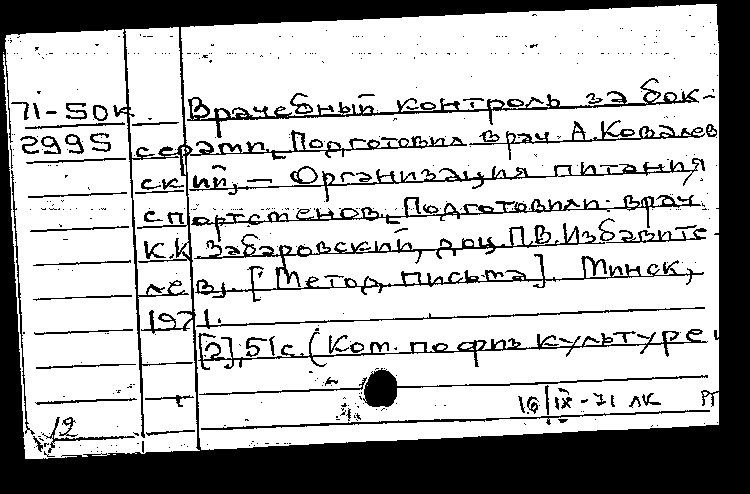 71-50к Врачебный контроль за бок-
2995 серами. Подготовил врач А. Ковалев
ский, — Организация питания
спортсменов. Подготовили: врач
К.К. Забаровский, доц. П.В. Избавите-
лев,. [Метод. письма]. Минск,
1971.
[2], 51 с. (Ком. по физ культуре и
16/IX-71 ЛК РТ
19